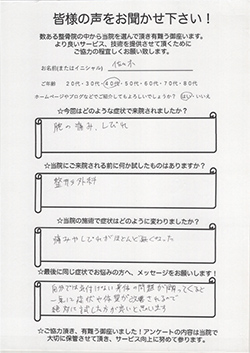 皆様の声をお聞かせ下さい！
数ある整骨院の中から当院を選んで頂き有難う御座います。
より良いサービス、技術を提供させて頂くために
ご協力の程宜しくお願い致します。
お名前(またはイニシャル) 佐々木
ご年齢 20代・30代・40代・50代・60代・70代・80代
ホームページやブログなどでご紹介してもよろしいでしょうか？ はい・いいえ
☆今回はどのような症状で来院されましたか？
腕の痛み、しびれ
☆当院にご来院される前に何か試したものはありますか？
整体
☆当院の施術で症状はどのように変わりましたか？
痛みやしびれがほとんど無くなった
☆最後に同じ症状でお悩みの方へ、メッセージをお願いします！
自分では気付けない身体の問題が
一気に症状や体質が改善されるので
絶対に試した方が良いと思います
☆ご協力頂き、有難う御座いました！アンケートの内容は当院で
大切に保管させて頂き、サービス向上に努めて参ります。